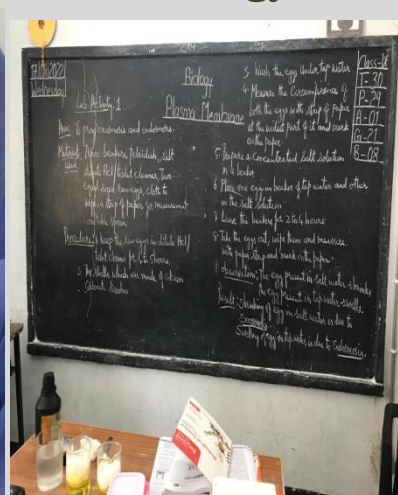 17/08/2022
Wednesday
Biology
Plasma Membrane
Lab Activity: 1
Aim: To prove exosmosis and endosmosis.
Material used: Three beakers, Petridish, salt
dilute Hcl/toilet cleaner, Two
equal sized raw eggs, cloth to
wipe, strip of paper for measurement
Spoon.
Procedure: 1. Keep the raw eggs in dilute Hcl/
toilet cleaner for
2. The shells which are made of
Carbonate dissolves
3. Wash the eggs under tap water
4. Measure the Circumference of
both the eggs with strip of paper
at the widest part of it and mark
on the paper.
5. Prepare a Concentrated salt solution
in a beaker
6. Place one egg in beaker of tap water and other
in the salt solution
7. Leave the beakers for 2 to 4 hours
8. Take the egg out, wipe them and measure
with paper strip and mark on the paper.
Observation: The egg present in salt water shrinks
The egg present in tap water swells
Result: Shrinking of egg in salt water is due to
Exosmosis
Swelling of egg in tap water is due to Endosmosis.
Class-IX
T-30
P-29
A-01
G-21
B-08